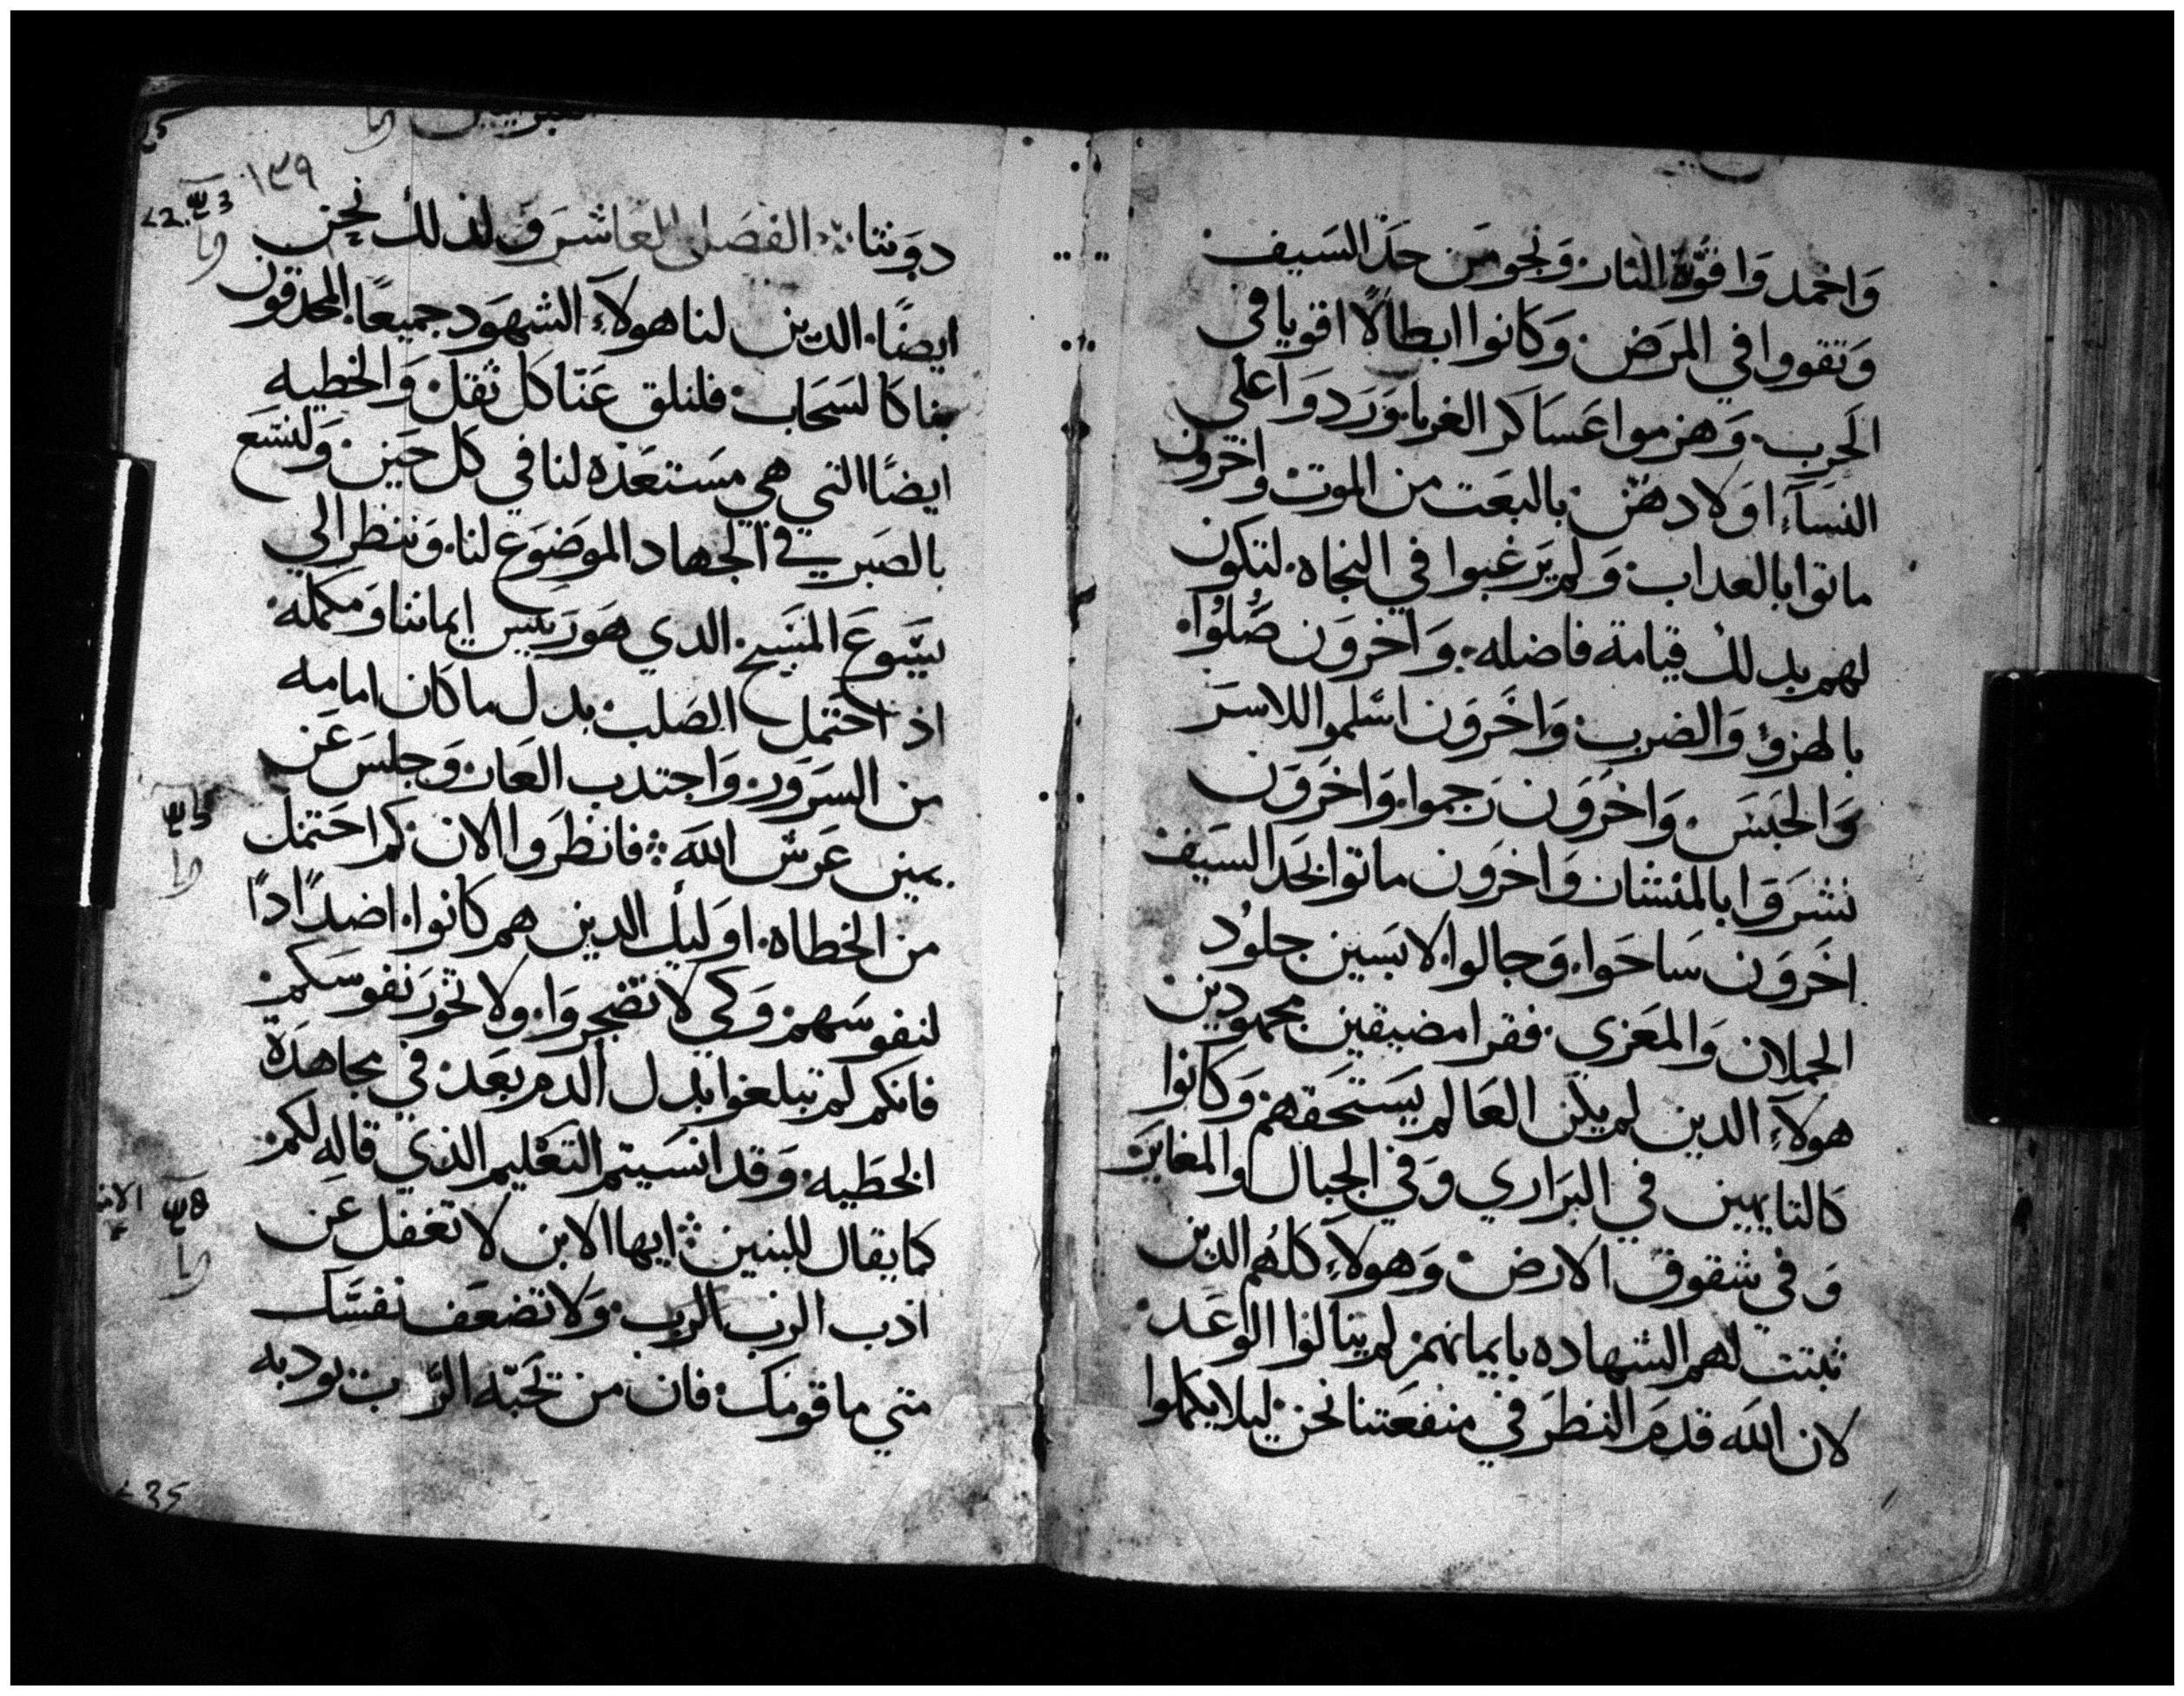 وَاخمدوَا قوَّة النار وَنجو من حدّ السَيف
وَتقووا في المرَض وَكانوا ابطالًا اقويا في
الحَرب وَهزموا عَسَاكر الغربا وَرَدوَا علي
النسَآء اوَلادهن بالبعَت من الموت واخرون
ماتوا بالعداب وَلم يرَغبوا في النجاه لتكون
لهم بدلك قيامة فاضله وَاخروَن صُلُوا
بالهزؤ وَالضرب وَاخَروَن اسَّلموا للاسرَ
وَالحَبسَ وَاخرَوَن رَجموا وَاخرَوَن
نشرَوَا بالمنشار وَاخروَن ماتوا بحَد السَيف
اخرَوَن سَاحَوا وَجالوا لابسَين جلوُد
الحملان وَالمعَزي فقرا مضيقين مجهودين
هولآءِ الدين لم يكن العَالم يسَتحَقهم وَكانوا
كالتايهين في البرَاري وَفي الجبال والمغاير
وَفي شقوق الارض وَهولآءِ كلهُم الدين
ثبتت لهم الشهاده بايمانهم لم ينالوا الوعَد
لان الله قدمَ النظرَ في منفعَتنا نحن ليلا يكملوا
١٣٩
دوَننا الفصَل العَاشرَ وَلدلك نحن
ايضًا الدين لنا هولآءِ الشهوَد جميعًا المحدقون
بنا كالسَحَاب فلنلق عَنّا كل ثقل وَالخطيه
ايضًا التي هي مسَتعَدّه لنا في كل حيَن وَلنسَّع
بالصَبر في الجهاد الموضوَع لنا وَننظر الي
يسَّوَعَ المسَيح الدي هوَ رَييس ايماننا وَمكمله
اذ احَتمل الصَلب بدل ما كان امامه
من السرَوَر وَاجتدب العَار وَجلسَ عَن
يمين عَرش الله فانظرَوا الان كم احَتمل
من الخطاه اوَليك الدين هم كانوا اضدًادًا
لنفوسَهم وَكي لا تضجروَا ولا تخوَر نفوسَكم
فانكم لم تبلغوا بدل الدم بعَد في مجاهدَة
الخطيه وَقد انسَيتم التعَليم الذي قاله لكم
كما يقال للبنين ايها الابن لا تغفل عن
ادب الرب وَلا تضعَف نفسَّك
متي ما قومَك فان من يحَبّه الرَّب يودبه